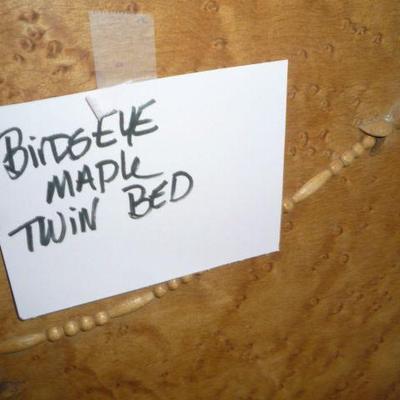 BIRDSEYE
MAPLE
TWIN BED